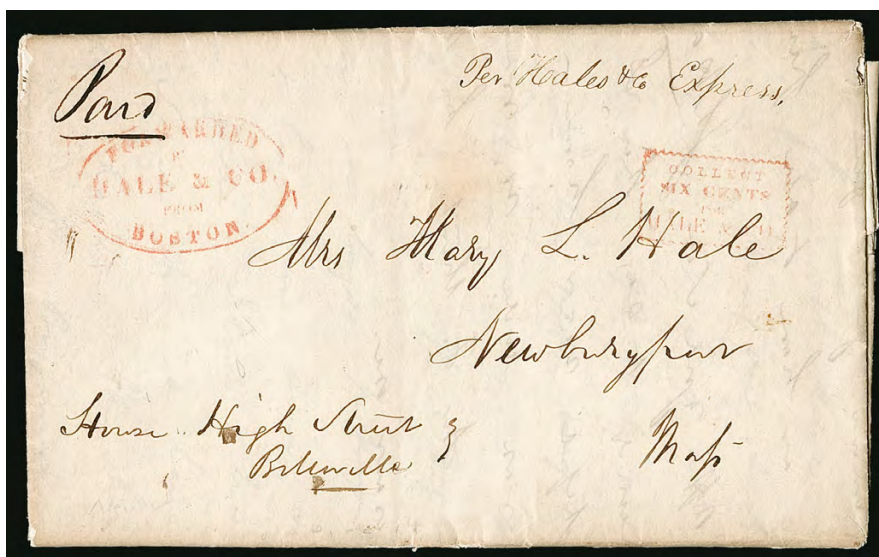 Paid
Per Hales & Co Express,
FORWARDED
BY
HALE & CO.
FROM
BOSTON.
COLLECT
SIX CENTS
FOR
HALE & CO.
Mrs Mary L. Hale
Newburyport
House High Street
Mass